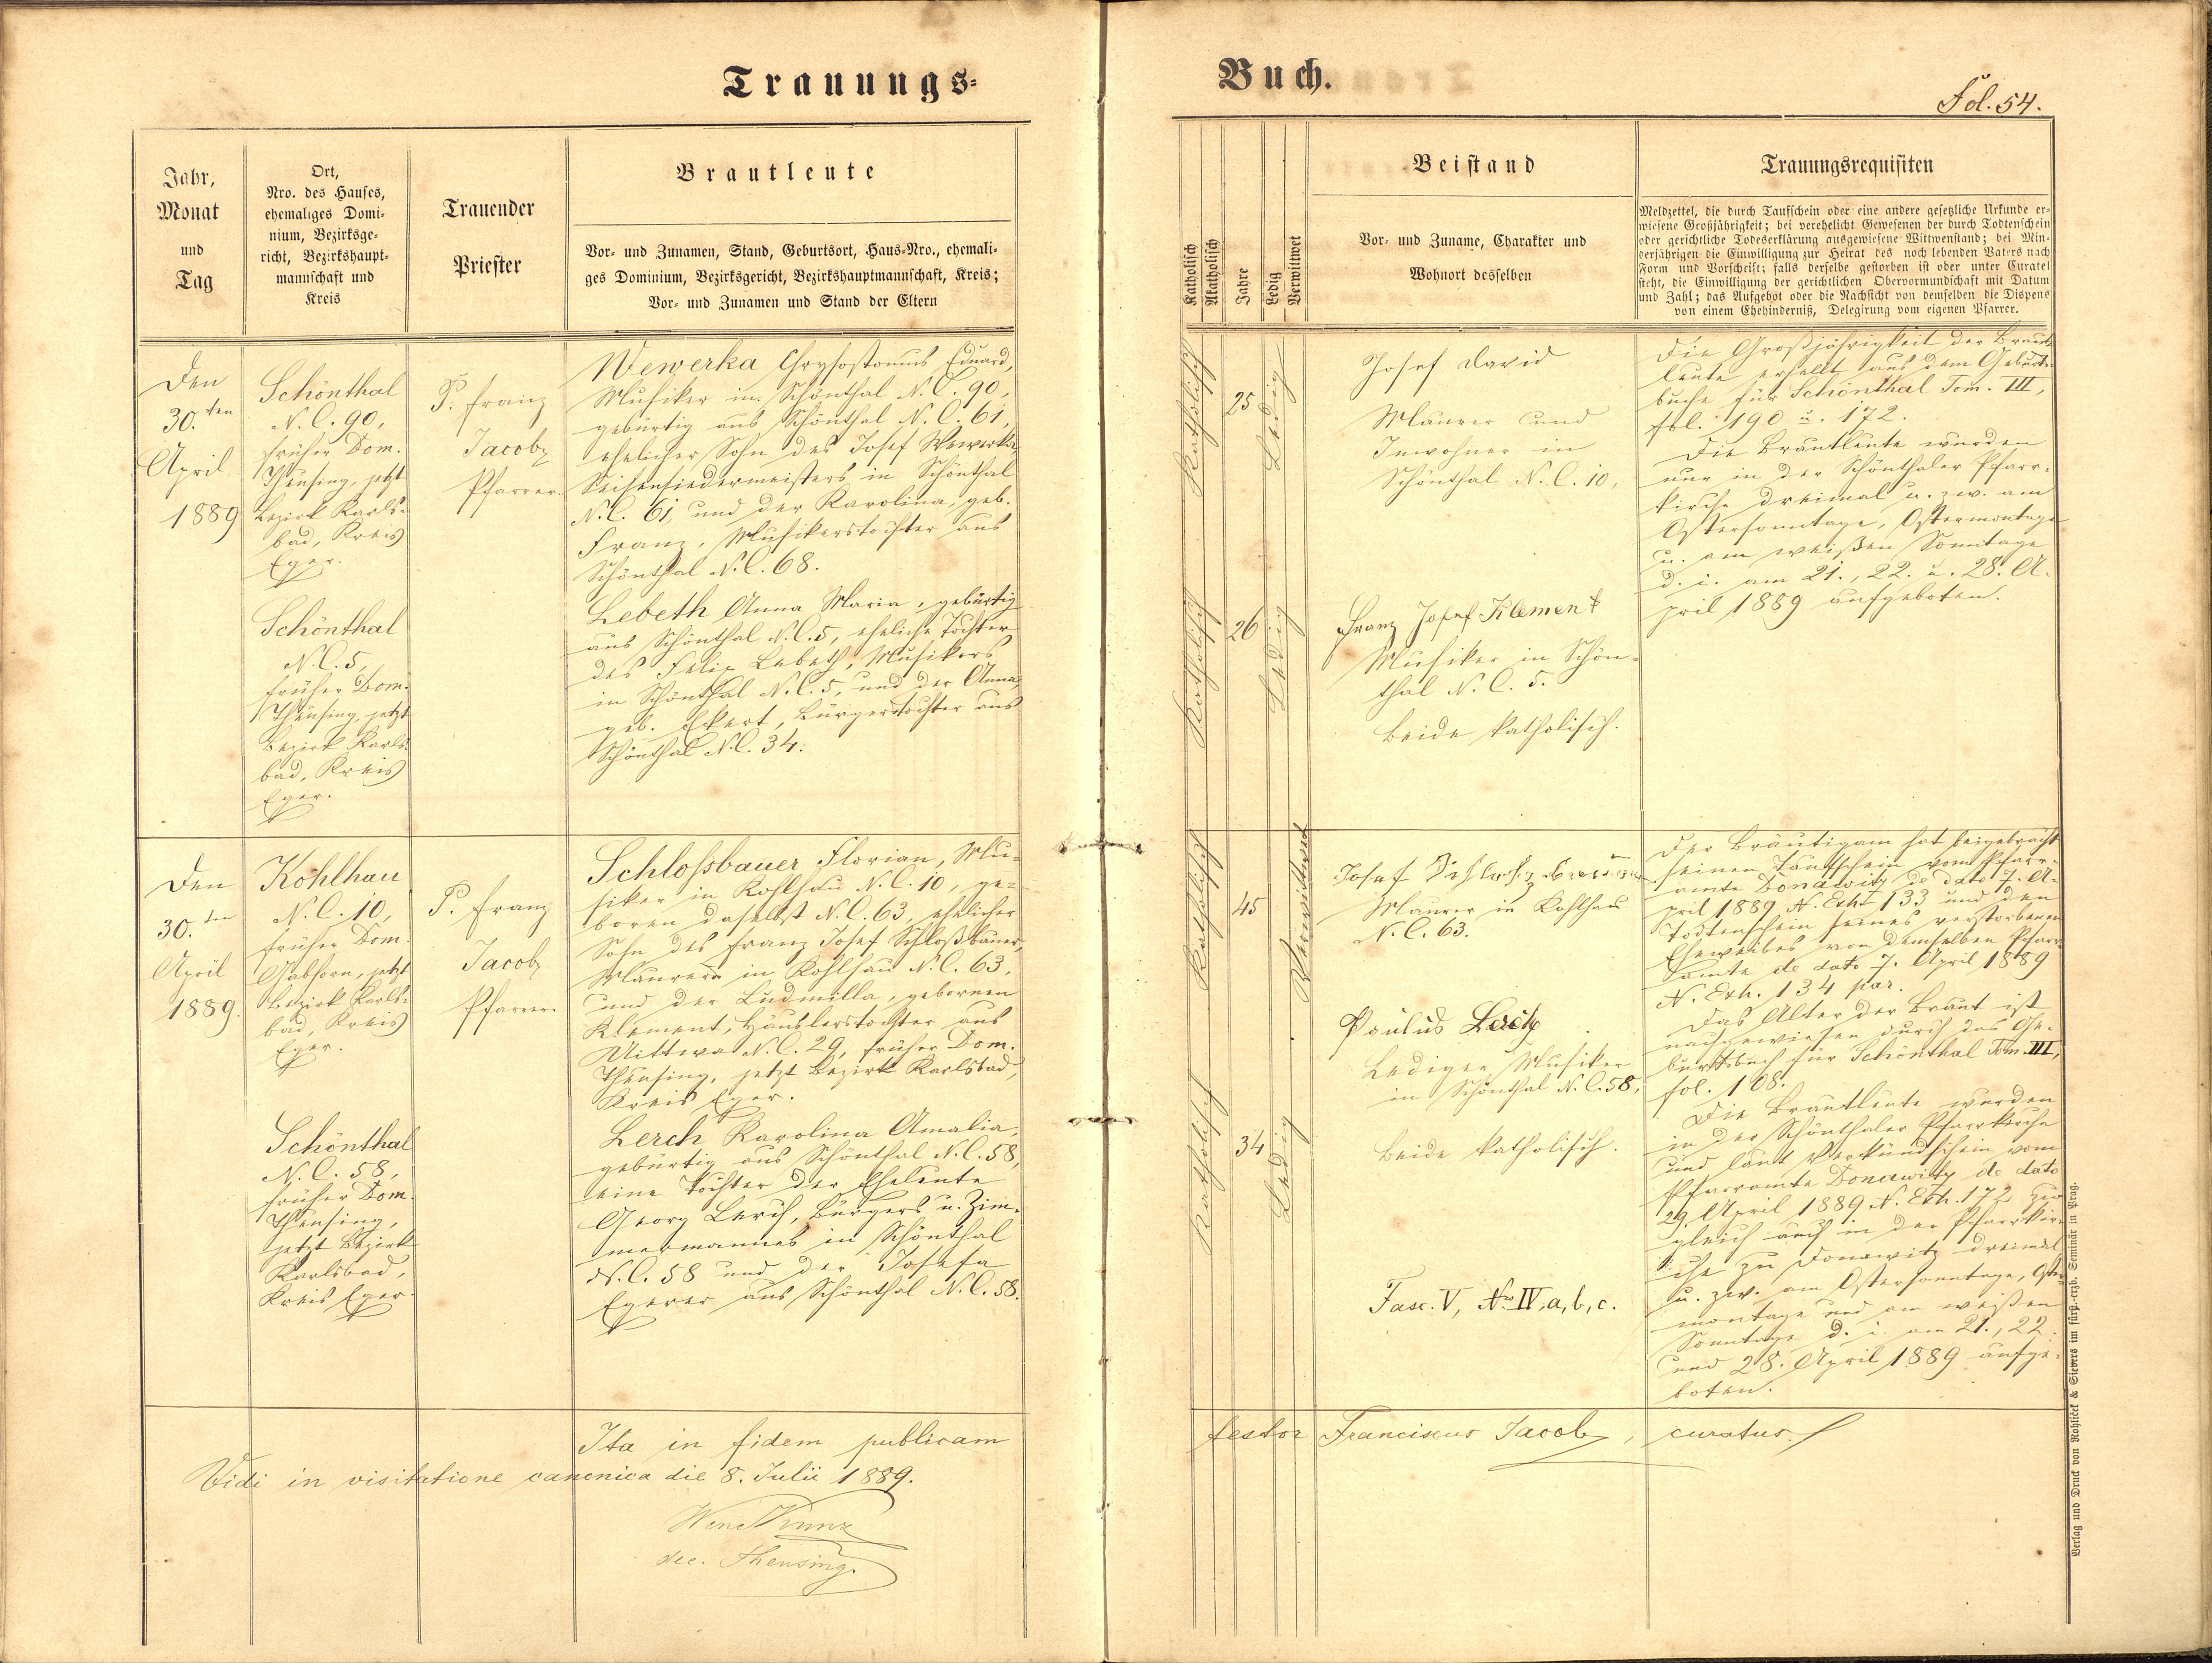 Trauungs-
Buch.
Fol. 54.
Jahr,
Monat
und
Tag
Ort,
Nro. des Hauses,
ehemaliges Domi-
nium, Bezirksge-
richt, Bezirkshaupt-
mannschaft und
Kreis
Trauender
Priester
Brautleute
Vor- und Zunamen, Stand, Geburtsort, Haus-Nro., ehemali-
ges Dominium, Bezirksgericht, Bezirkshauptmannschaft, Kreis;
Vor- und Zunamen und Stand der Eltern
Katholisch
Akatholisch
Jahre
Ledig
Verwittwet
Beistand
Vor- und Zuname, Charakter und
Wohnort desselben
Trauungsrequisiten
Meldzettel, die durch Taufschein oder eine andere gesetzliche Urkunde er-
wiesene Großjährigkeit; bei verehelicht Gewesenen der durch Todtenschein
oder gerichtliche Todeserklärung ausgewiesene Wittwenstand; bei Min-
derjährigen die Einwilligung zur Heirat des noch lebenden Vaters nach
Form und Vorschrift; falls derselbe gestorben ist oder unter Curatel
steht, die Einwilligung der gerichtlichen Obervormundschaft mit Datum
und Zahl; das Aufgebot oder die Nachsicht von demselben die Dispens
von einem Ehehinderniß, Delegirung vom eigenen Pfarrer.
Den
30.ten
April
1889
Schönthal
N. C. 90,
früher Dom.
Theusing, jetzt
Bezirk Karls-
bad, Kreis
Eger.
P. Franz
Jacob,
Pfarrer.
Wewerka Chrysostomus Eduard,
Musiker in Schönthal N. C. 90,
gebürtig aus Schönthal N. C. 61,
ehelicher Sohn des Josef Wewerka,
Seifensiedermeisters in Schönthal
N. C. 61, und der Karolina, geb.
Franz, Musikerstochter aus
Schönthal N. C. 68.
Katholisch
25
Ledig
Josef David
Maurer und
Inwohner in
Schönthal N. C. 10,
Die Großjährigkeit der Braut-
leute erhellt aus dem Geburts-
buche für Schönthal Tom. III,
fol. 190 u. 172.
Die Brautleute wurden
nur in der Schönthaler Pfarr-
kirche dreimal u. zw. am
Ostersonntage, Ostermontage
u. am weißen Sonntage
d. i. am 21., 22. u. 28. A-
pril 1889 aufgeboten.
Schönthal
N. C. 5,
früher Dom.
Theusing, jetzt
Bezirk Karls-
bad, Kreis
Eger.
Lebeth Anna Maria, gebürtig
aus Schönthal N. C. 5, eheliche Tochter
des Felix Lebeth, Musikers
in Schönthal N. C. 5, und der Anna,
geb. Ekert, Bürgerstochter aus
Schönthal N. C. 34.
Katholisch
26
Ledig
Franz Josef Klement
Musiker in Schön-
thal N. C. 5.
Beide katholisch.
Den
30.ten
April
1889.
Kohlhau
N. C. 10,
früher Dom.
Gabhorn, jetzt
Bezirk Karls-
bad, Kreis
Eger.
P. Franz
Jacob,
Pfarrer.
Schloßbauer Florian, Mu-
siker in Kohlhau N. C. 10, ge-
boren daselbst N. C. 63, ehelicher
Sohn des Franz Josef Schloßbauer,
Maurers in Kohlhau N. C. 63,
und der Ludmilla, gebornen
Klement, Häuslerstochter aus
Mittwa N. C. 29, früher Dom.
Theusing, jetzt Bezirk Karlsbad,
Kreis Eger.
Katholisch
45
Verwittwet
Josef Schloßbauer
Maurer in Kohlhau
N. C. 63.
Der Bräutigam hat beigebracht
seinen Taufschein vom Pfarr-
amte Donawitz de dato 7. A-
pril 1889 N. Exh. 133 und den
Todtenschein seines verstorbenen
Eheweibes von demselben Pfarr-
amte de dato 7. April 1889
N. Exh. 134 par.
Das Alter der Braut ist
nachgewiesen durch das Ge-
burtsbuch für Schönthal Tom. III,
fol. 108.
Die Brautleute wurden
in der Schönthaler Pfarrkirche
und laut Verkündschein vom
Pfarramte Donawitz de dato
29. April 1889 N. Exh. 172 zu-
gleich auch in der Pfarrkir-
che zu Donawitz dreimal
u. zw. am Ostersonntage, Oster-
montage und am weißen
Sonntage d. i. am 21., 22.
und 28. April 1889 aufge-
boten.
Schönthal
N. C. 58,
früher Dom.
Theusing,
jetzt Bezirk
Karlsbad,
Kreis Eger.
Lerch Karolina Amalia,
gebürtig aus Schönthal N. C. 58,
eine Tochter der Eheleute
Georg Lerch, Bürgers u. Zim-
mermannes in Schönthal
N. C. 58 und der Josefa
Egerer aus Schönthal N. C. 58.
Katholisch
34
Ledig
Paulus Lerch
Lediger Musiker
in Schönthal N. C. 58,
Beide katholisch.
Fasc. V, Nro IV, a, b, c.
Ita in fidem publicam
testor Franciscus Jacob, curatus.
Vidi in visitatione canonica die 8. Julii 1889.
Wenc Kunz
dec. Theusing.
Verlag und Druck von Rohliček & Sievers im fürst.-erzb. Seminär in Prag.